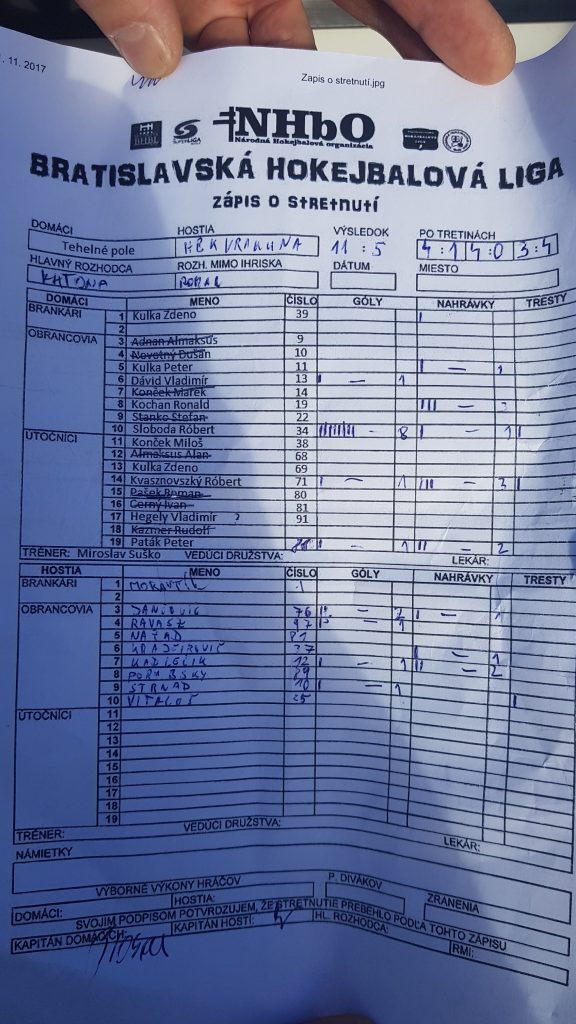 . 11. 2017
Zapis o stretnutí.jpg
NHbO
Národná Hokejbalová organizácia
BRATISLAVSKÁ HOKEJBALOVÁ LIGA
ZÁPIS O STRETNUTÍ
DOMÁCI HOSTIA VÝSLEDOK PO TRETINÁCH
Tehelné pole HBK VRAKUŇA 11 : 5 4 : 1 4 : 0 3 : 4
HLAVNÝ ROZHODCA ROZH. MIMO IHRISKA DÁTUM MIESTO
KATONA
DOMÁCI MENO ČÍSLO GÓLY NAHRÁVKY TRESTY
BRANKÁRI 1 Kulka Zdeno 39 I
2
OBRANCOVIA 3 Adnan Almaksus 9
4 Novotný Dušan 10
5 Kulka Peter 11 I — 1
6 Dávid Vladimír 13 I — 1
7 Konček Marek 14
8 Kochan Ronald 19 III —
9 Stanko Stefan 22
10 Sloboda Róbert 34 IIIIIIII – 8 I – 1 I
ÚTOČNÍCI 11 Konček Miloš 38
12 Almaksus Alan 68
13 Kulka Zdeno 69
14 Kvasznovszký Róbert 71 I – 1 III – 3 I
15 Pašek Roman 80
16 Černý Ivan 81
17 Hegely Vladimír ? 91
18 Kazmer Rudolf
19 Paták Peter I – 1 II – 2
TRÉNER: Miroslav Suško VEDÚCI DRUŽSTVA: LEKÁR:
HOSTIA MENO ČÍSLO GÓLY NAHRÁVKY TRESTY
BRANKÁRI 1 1
2
OBRANCOVIA 3 76 II – 2 I – 1
4 RAVASZ 97 I – 1
5 81
6 37 I – 1
7 12 I – 1 II – 2
8 89
9 STRNAD 10 I – 1
10 25 I
ÚTOČNÍCI 11
12
13
14
15
16
17
18
19
TRÉNER: VEDÚCI DRUŽSTVA: LEKÁR:
NÁMIETKY
VÝBORNÉ VÝKONY HRÁČOV P. DIVÁKOV ZRANENIA
DOMÁCI: HOSTIA:
SVOJIM PODPISOM POTVRDZUJEM, ŽE STRETNUTIE PREBEHLO PODĽA TOHTO ZÁPISU
KAPITÁN DOMÁCICH: KAPITÁN HOSTÍ: HL. ROZHODCA: RMI: